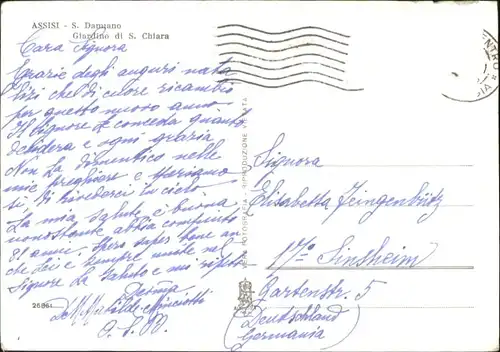 ASSISI - S. Damiano
Giardino di S. Chiara
Cara Signora
Grazie degli auguri nata
lizi che di cuore ricambio
per questo nuovo anno
Il Signore Le conceda quanto
desidera e ogni grazia
Non La dimentico nelle
mie preghiere e speriamo
di rivederci in cielo.
La mia salute è buona
nonostante abbia compiuto
81 anni. Spero sapere bene an
che Lei e sempre unite nel
Signore La saluto e mi
26861
VERA FOTOGRAFIA - RIPRODUZIONE VIETATA
Signora
Elisabetta
Sinsheim
Gartenstr. 5
(Deutschland
Germania)